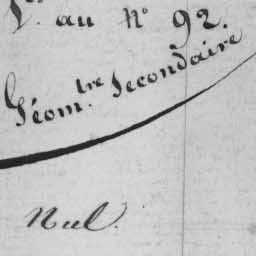 au N° 92.
Géom.tre Secondaire
Nul.